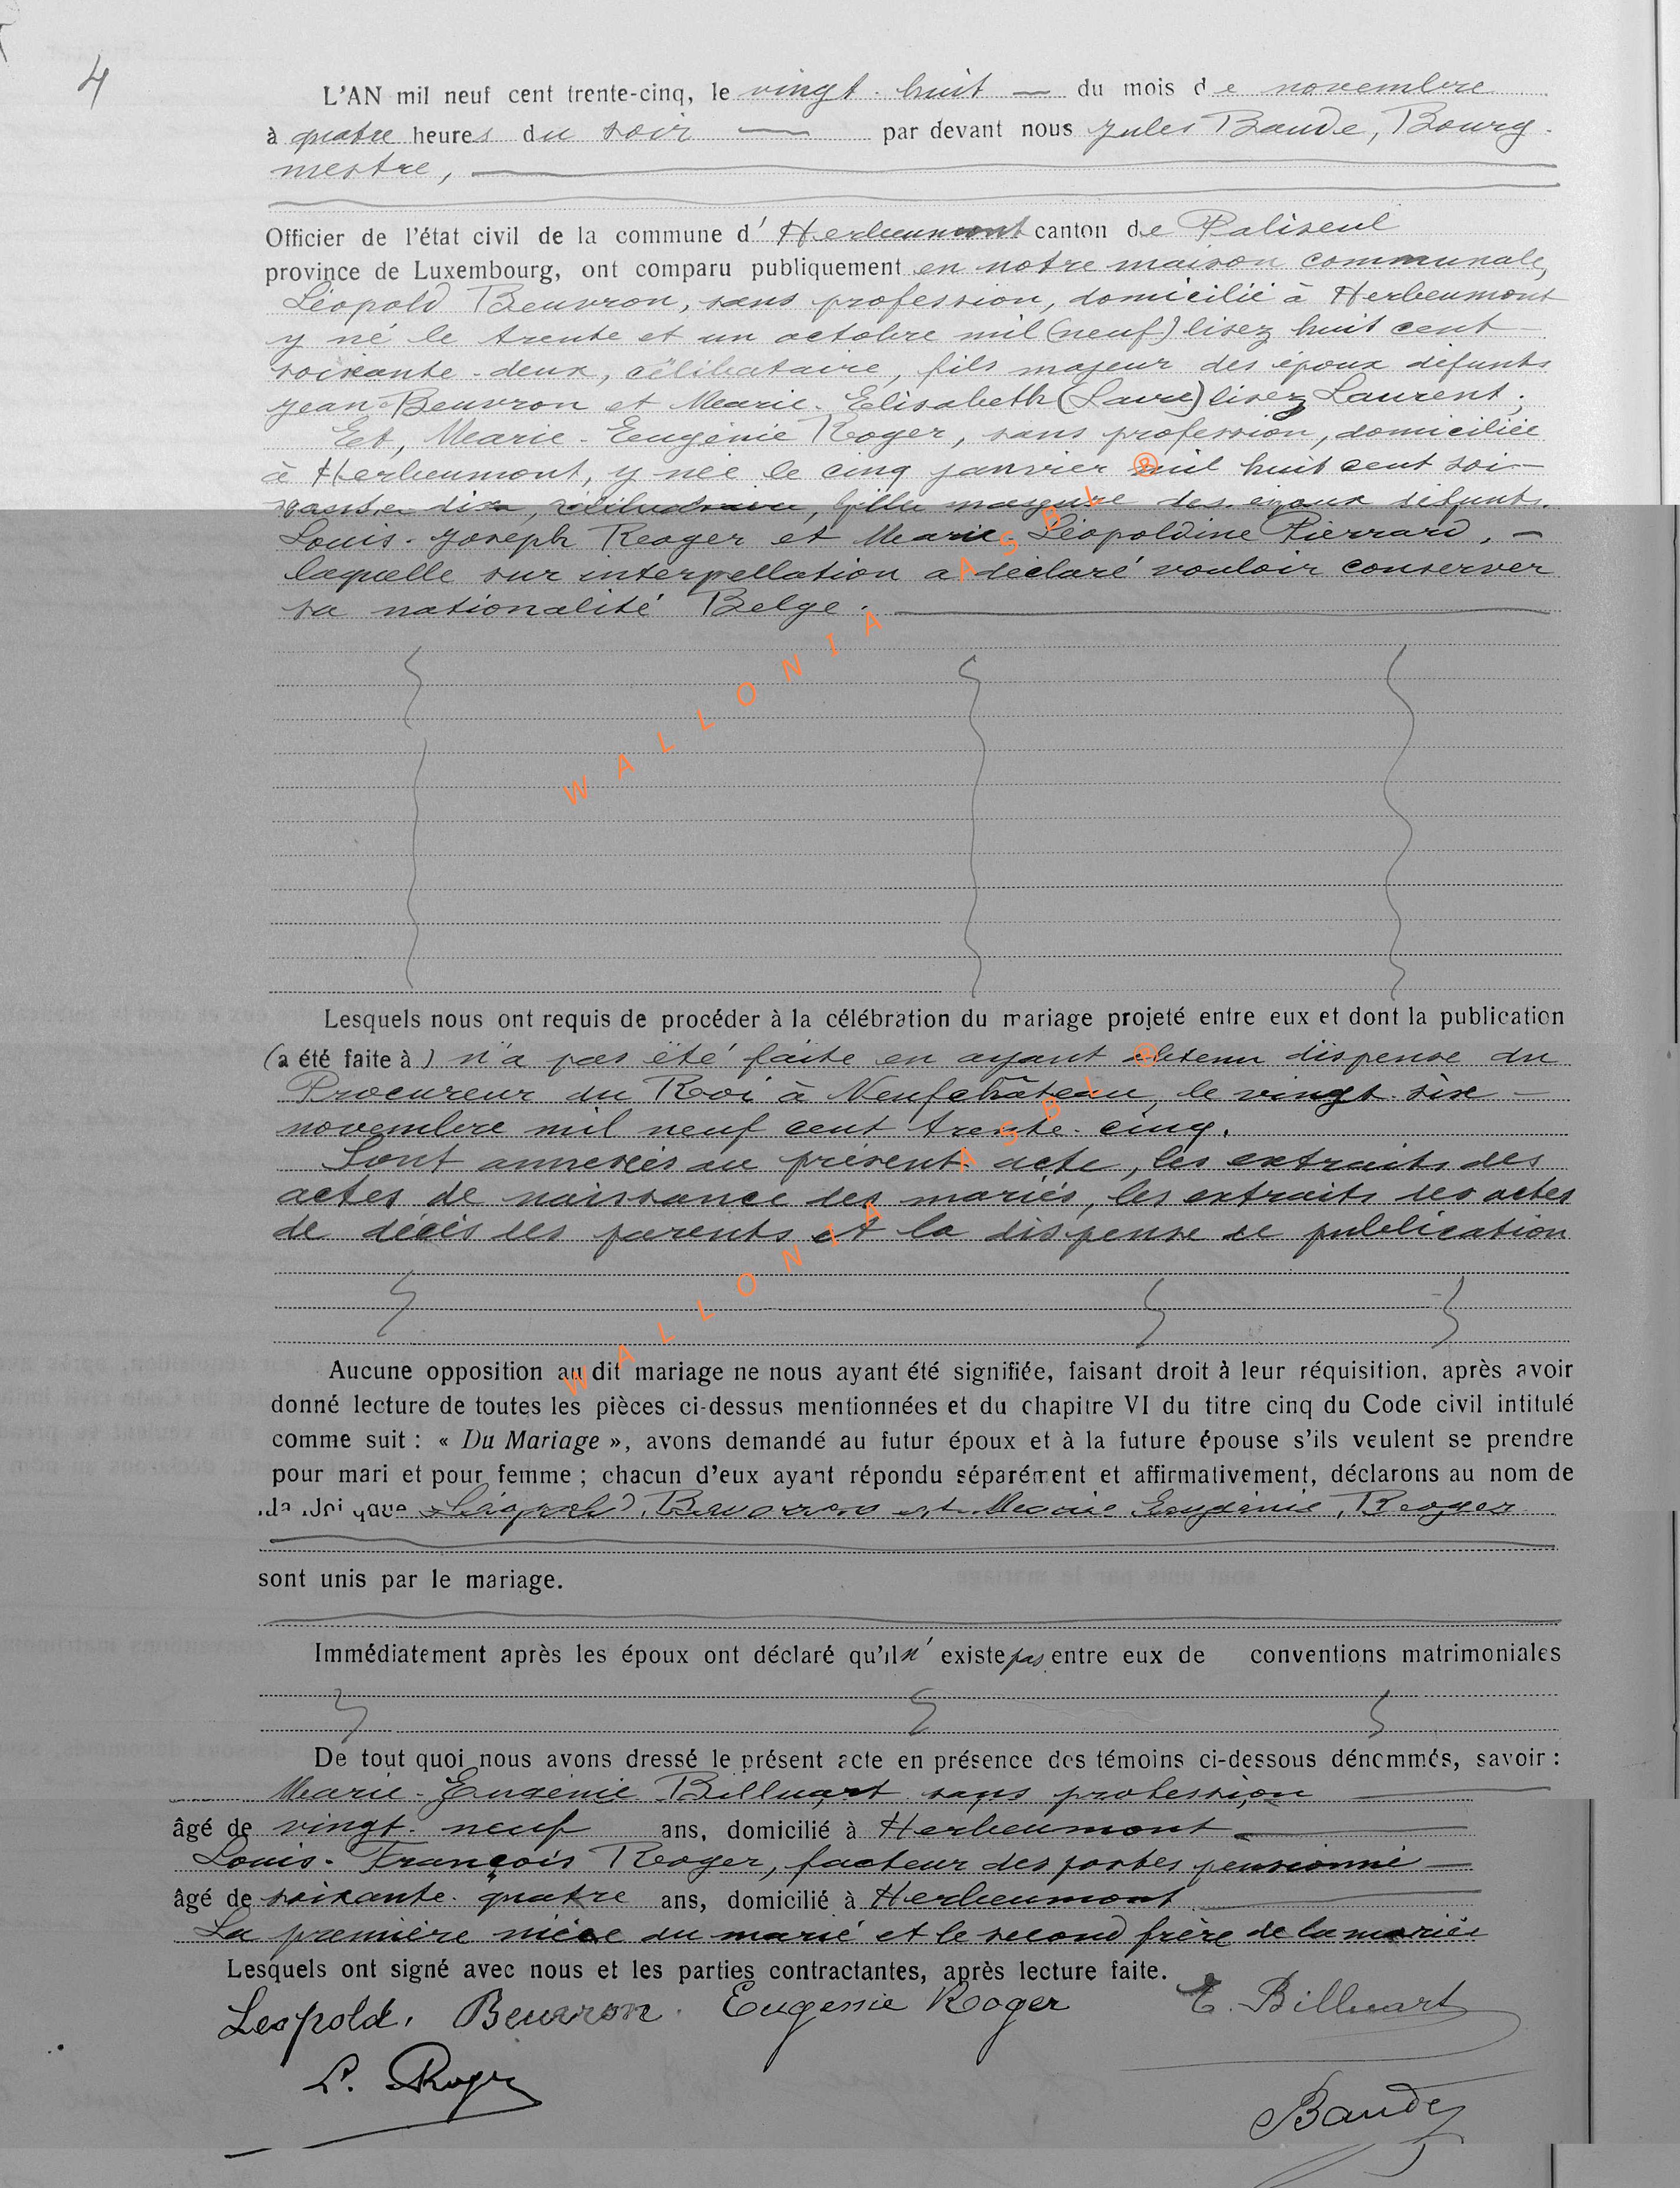 4
L'AN mil neuf cent trente-cinq, le vingt-huit — du mois de novembre
à quatre heures du soir — par devant nous Jules Baude, Bourg-
mestre,
Officier de l'état civil de la commune d'Herbeumont canton de Paliseul
province de Luxembourg, ont comparu publiquement en notre maison communale,
Léopold Beuvron, sans profession, domicilié à Herbeumont
y né le trente et un octobre mil (neuf) lisez huit cent
soixante-deux, célibataire, fils majeur des époux défunts
Jean Beuvron et Marie-Elisabeth (Laure) lisez Laurent;
Et, Marie-Eugénie Roger, sans profession, domiciliée
à Herbeumont, y née le cinq janvier mil huit cent soi-
xante dix, célibataire, fille majeure des époux défunts
Louis-Joseph Roger et Marie-Léopoldine Pierrard, —
laquelle sur interpellation a déclaré vouloir conserver
sa nationalité Belge.
WALLONIA ASBL ®
Lesquels nous ont requis de procéder à la célébration du mariage projeté entre eux et dont la publication
(a été faite à) n'a pas été faite en ayant obtenu dispense du
Procureur du Roi à Neufchâteau, le vingt-six —
novembre mil neuf cent trente-cinq.
Sont annexés au présent acte, les extraits des
actes de naissance des mariés, les extraits des actes
de décès des parents et la dispense de publication
WALLONIA ASBL ®
Aucune opposition au dit mariage ne nous ayant été signifiée, faisant droit à leur réquisition, après avoir
donné lecture de toutes les pièces ci-dessus mentionnées et du chapitre VI du titre cinq du Code civil intitulé
comme suit : « Du Mariage », avons demandé au futur époux et à la future épouse s'ils veulent se prendre
pour mari et pour femme ; chacun d'eux ayant répondu séparément et affirmativement, déclarons au nom de
la loi que Léopold, Beuvron et Marie Eugénie, Roger
sont unis par le mariage.
Immédiatement après les époux ont déclaré qu'il n'existe pas entre eux de conventions matrimoniales
De tout quoi nous avons dressé le présent acte en présence des témoins ci-dessous dénommés, savoir :
Marie-Eugénie Billuart sans profession
âgé de vingt-neuf ans, domicilié à Herbeumont
Louis-François Roger, facteur des postes pensionné
âgé de soixante-quatre ans, domicilié à Herbeumont
La première nièce du marié et le second frère de la mariée
Lesquels ont signé avec nous et les parties contractantes, après lecture faite.
Leopold. Beuvron. Eugenie Roger E. Billuart
L. Roger
Baude